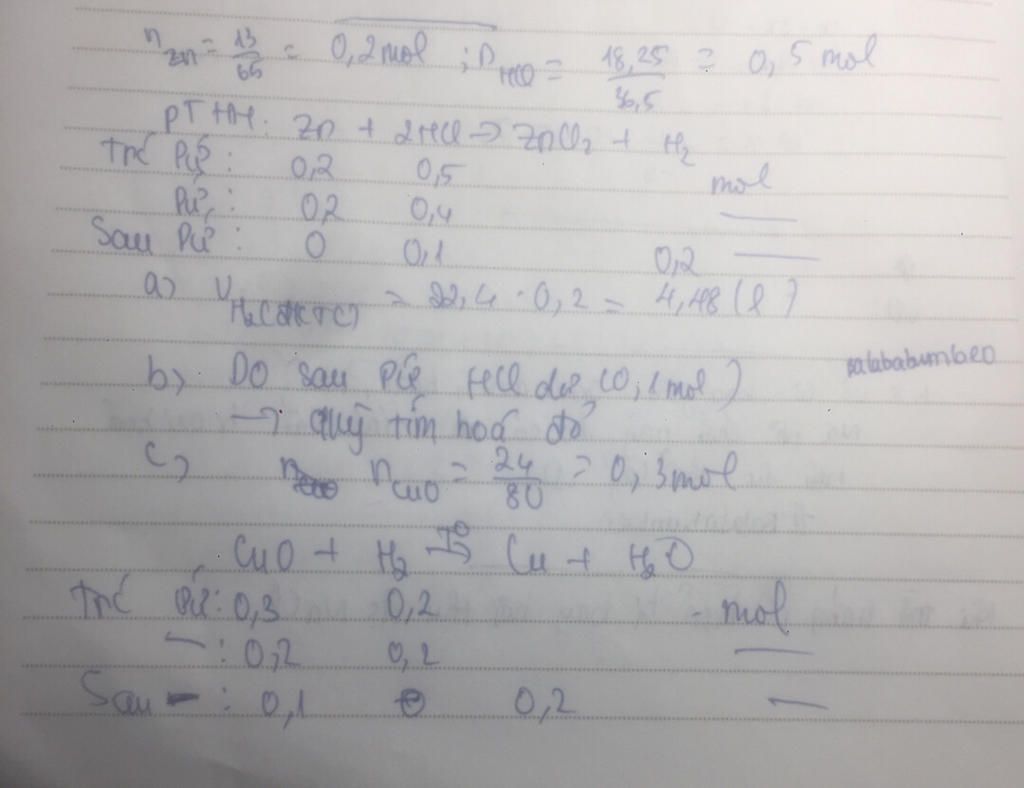 n Zn = 13/65 = 0,2 mol ; n HCl = 18,25/36,5 = 0,5 mol
PTHH: Zn + 2HCl → ZnCl2 + H2
Trc Pứ : 0,2 0,5 mol
Pứ : 0,2 0,4 —
Sau Pứ : 0 0,1 0,2 —
a) V H2(ĐKTC) = 22,4 . 0,2 = 4,48 (l)
salababumbeo
b) Do sau Pứ HCl dư (0,1mol)
→ Quỳ tím hoá đỏ
c) n CuO = 24/80 = 0,3 mol
CuO + H2 –T°→ Cu + H2O
Trc Pứ : 0,3 0,2 - mol
— : 0,2 0,2 —
Sau - : 0,1 0 0,2 —